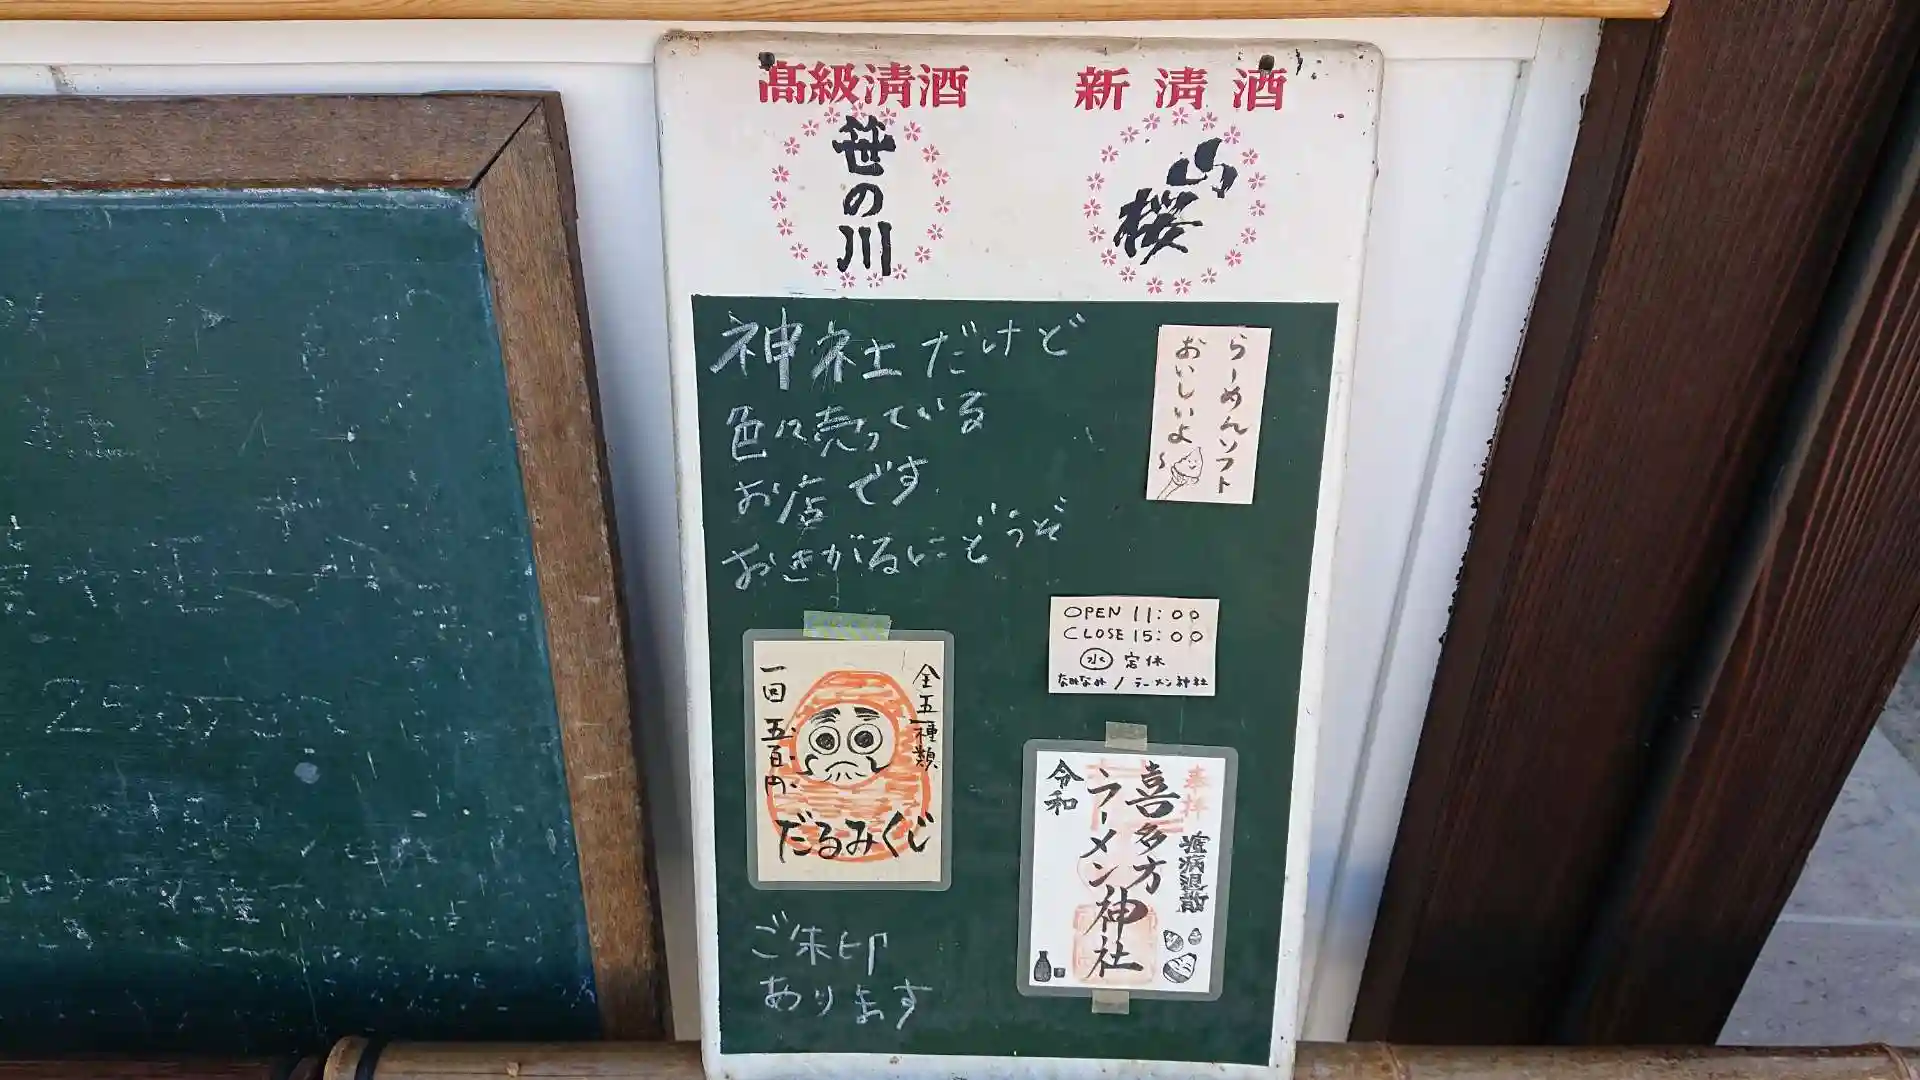 高級清酒
笹の川
新清酒
山桜
神社だけど
色々売っている
お店です
おきがるにどうぞ
らーめんソフト
おいしいよ
OPEN 11:00
CLOSE 15:00
㊌ 定休
なみなみ/ラーメン神社
全五種類
一回 五百円
だるみくじ
奉拝
疫病退散
喜多方
ラーメン神社
令和
ご朱印
あります